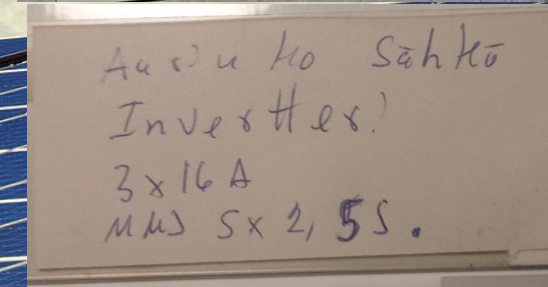 Aurinko Sähkö
InvertTer!
3x16 A
MMJ 5x2,5S.